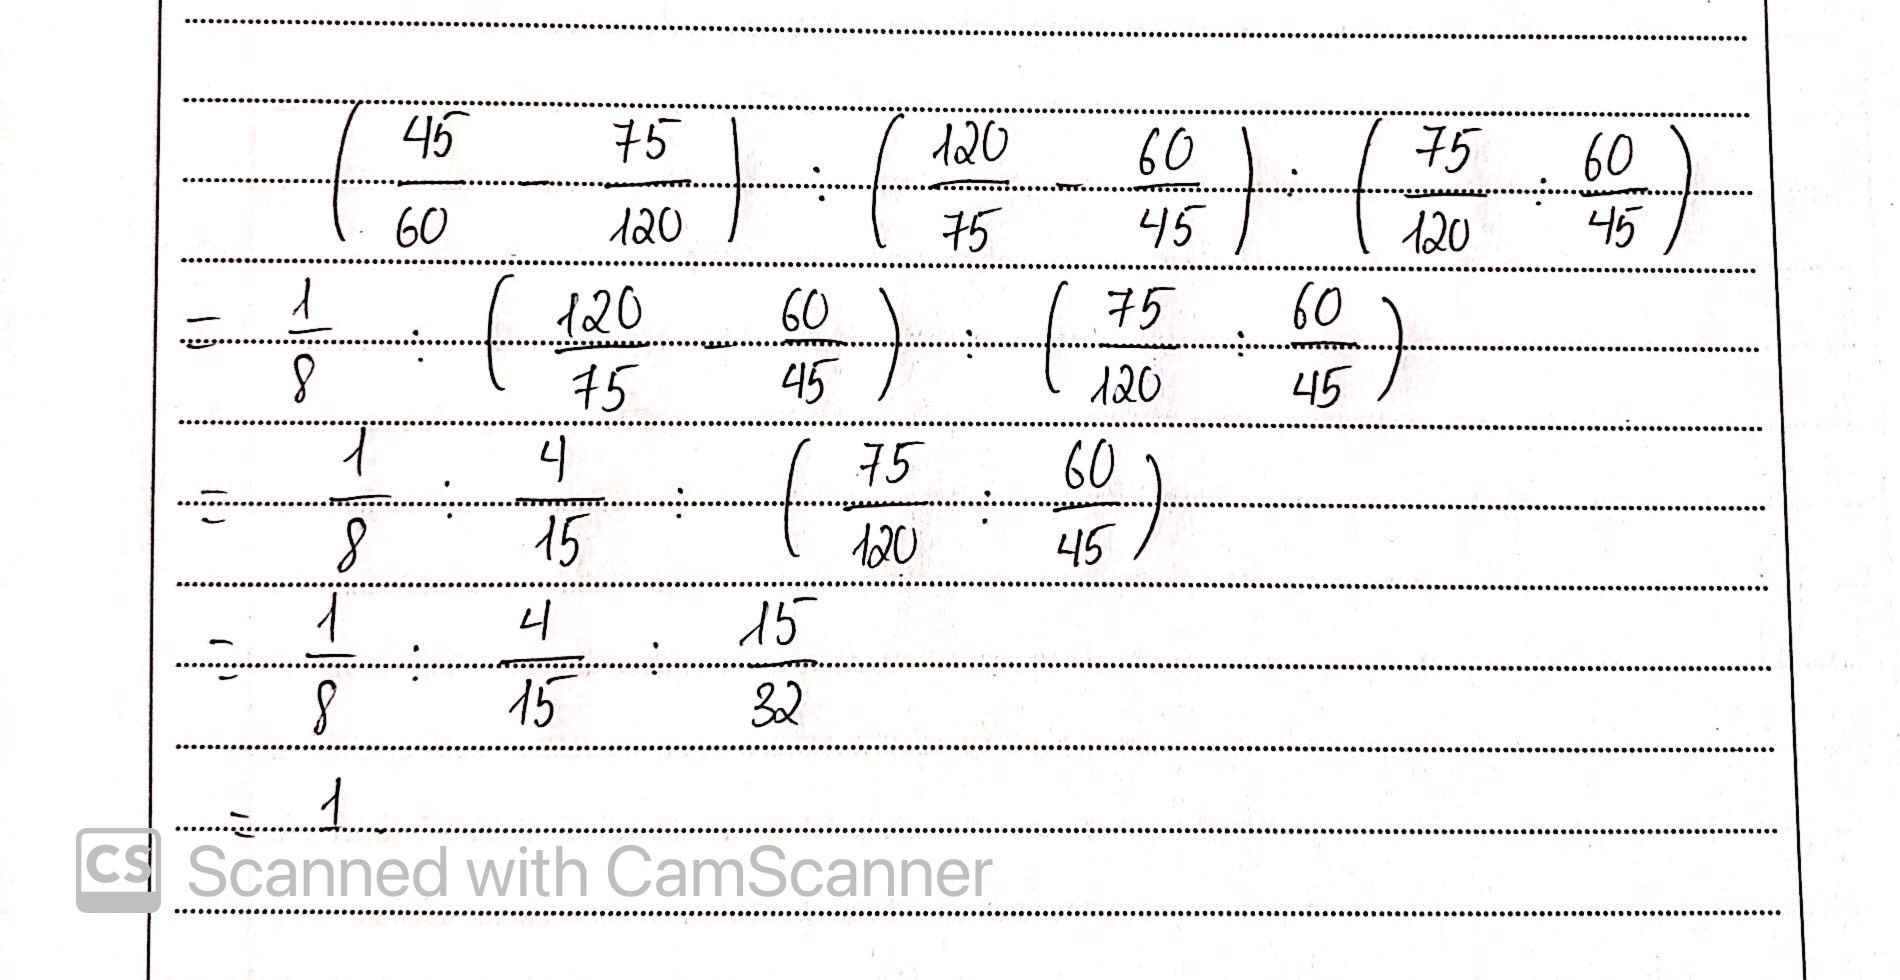 (45/60 - 75/120) : (120/75 - 60/45) : (75/120 : 60/45)
= 1/8 : (120/75 - 60/45) : (75/120 : 60/45)
= 1/8 : 4/15 : (75/120 : 60/45)
= 1/8 : 4/15 : 15/32
= 1.
CS Scanned with CamScanner